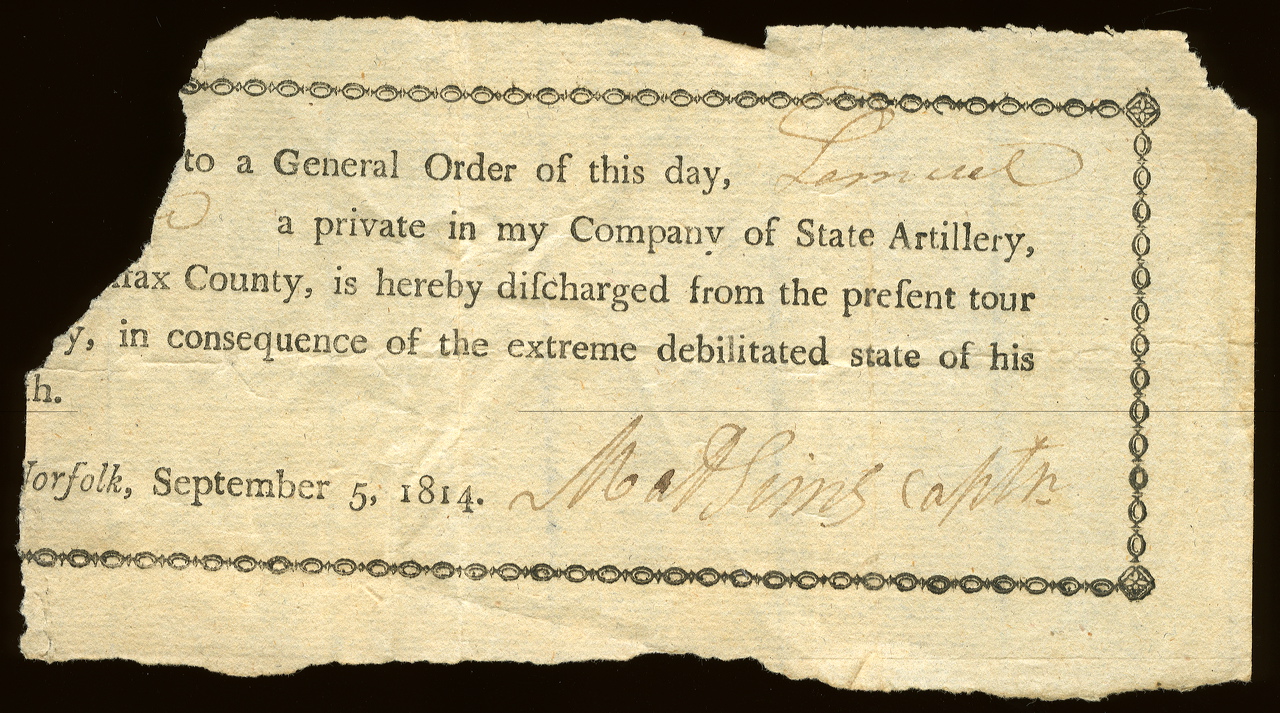 to a General Order of this day, Lemuel
a private in my Company of State Artillery,
fax County, is hereby diſcharged from the preſent tour
y, in consequence of the extreme debilitated state of his
th.
Norfolk, September 5, 1814. Matt Sims captn